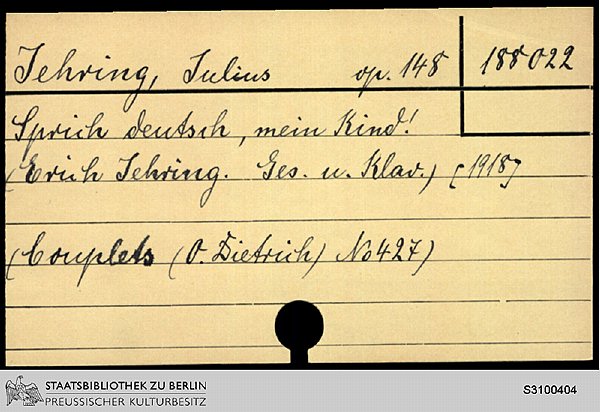 Jehring, Julius op. 148 188022
Sprich deutsch, mein Kind!
(Erich Jehring. Ges. u. Klav.) [1918]
(Couplets (O. Dietrich) No 427)
STAATSBIBLIOTHEK ZU BERLIN
PREUSSISCHER KULTURBESITZ
S3100404